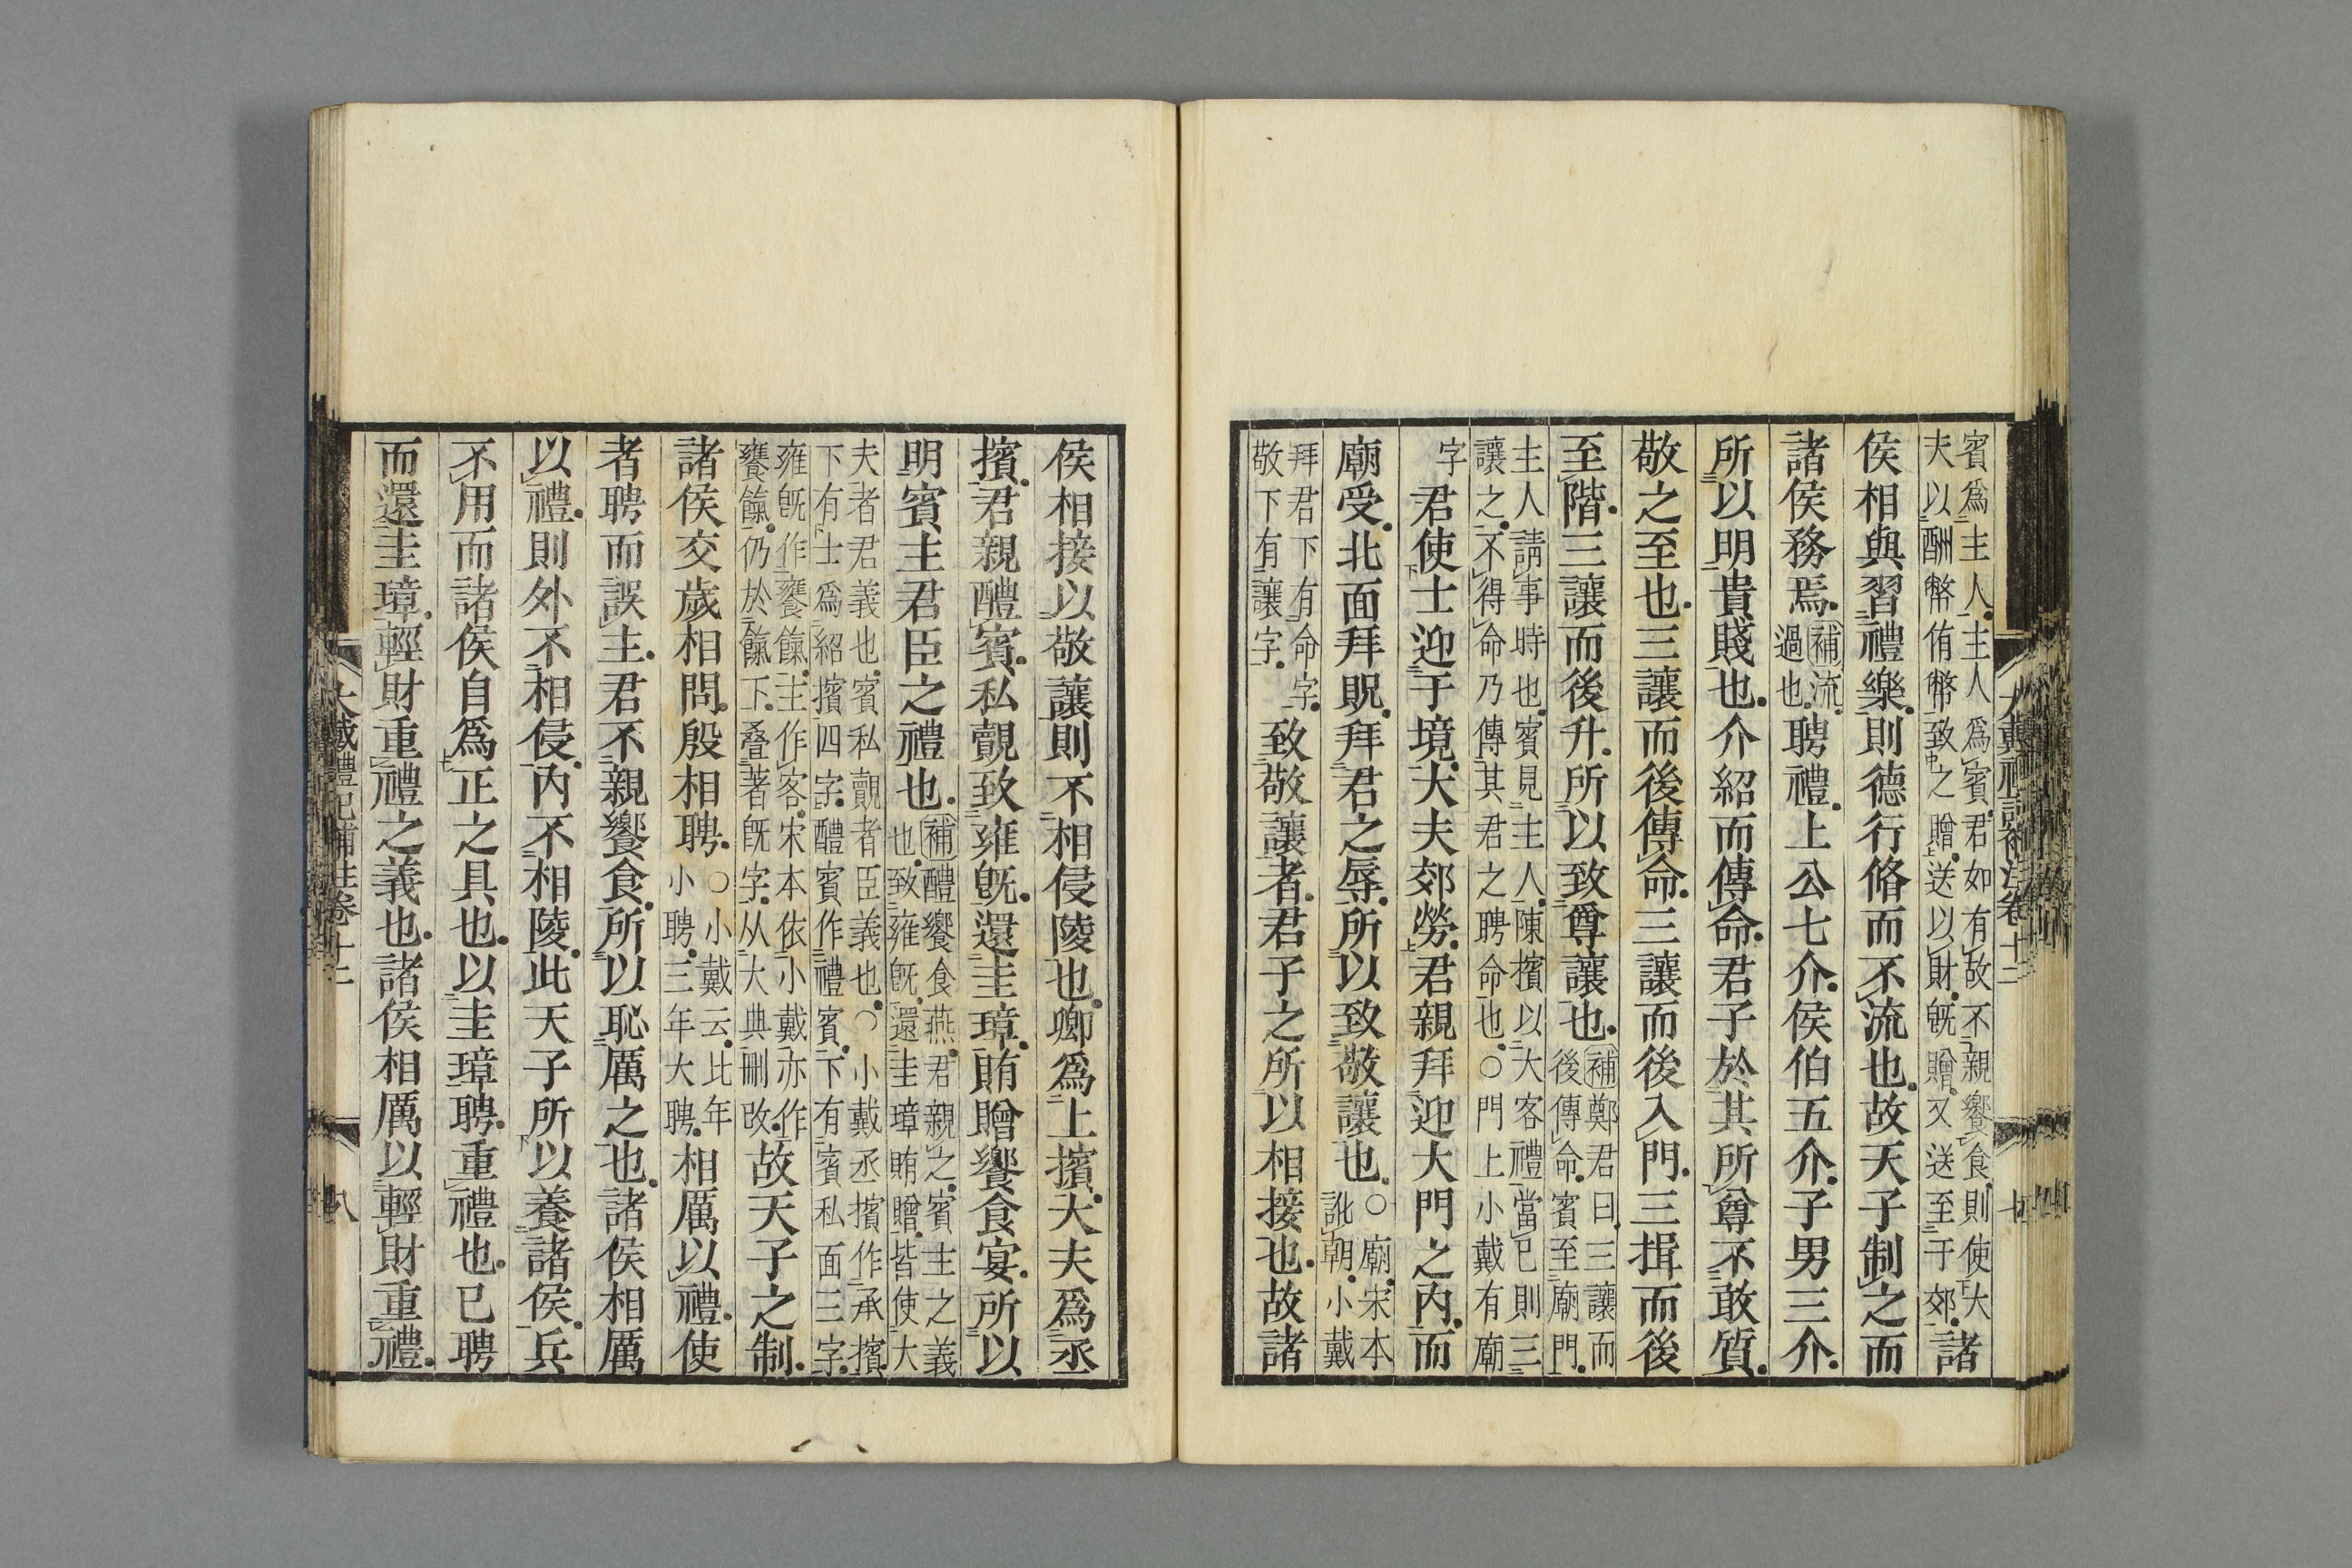 賓爲主人主人爲賓君如有故不親饗食則使大
夫以酬幣侑幣致之贈送以財旣贈又送至于郊諸
侯相與習禮樂則德行脩而不流也故天子制之而
諸侯務焉補流過也聘禮上公七介侯伯五介子男三介
所以明貴賤也介紹而傳命君子於其所尊不敢質
敬之至也三讓而後傳命三讓而後入門三揖而後
至階三讓而後升所以致尊讓也補鄭君曰三讓而
後傳命賓至廟門
主人請事時也賓見主人陳擯以大客禮當已則三
讓之不得命乃傳其君之聘命也○門上小戴有廟
字君使士迎于境大夫郊勞君親拜迎大門之內而
廟受北面拜貺拜君之辱所以致敬讓也○廟宋本
訛朝小戴
拜君下有命字
敬下有讓字致敬讓者君子之所以相接也故諸
大戴禮記補注卷十二
七
侯相接以敬讓則不相侵陵也卿爲上擯大夫爲丞
擯君親醴賓私覿致雍旣還圭璋賄贈饗食宴所以
明賓主君臣之禮也補醴饗食燕君親之賓主之義
也致雍旣還圭璋賄贈皆使大
夫者君義也賓私覿者臣義也○小戴丞擯作承擯
下有士爲紹擯四字醴賓作禮賓下有賓私面三字
雍旣作饔餼主作客宋本依小戴亦作
饔餼仍於餼下叠著旣字从大典刪改故天子之制
諸侯交歲相問殷相聘○小戴云比年
小聘三年大聘相厲以禮使
者聘而誤主君不親饗食所以恥厲之也諸侯相厲
以禮則外不相侵內不相陵此天子所以養諸侯兵
不用而諸侯自爲正之具也以圭璋聘重禮也已聘
而還圭璋輕財重禮之義也諸侯相厲以輕財重禮
大戴禮記補注卷十二
八